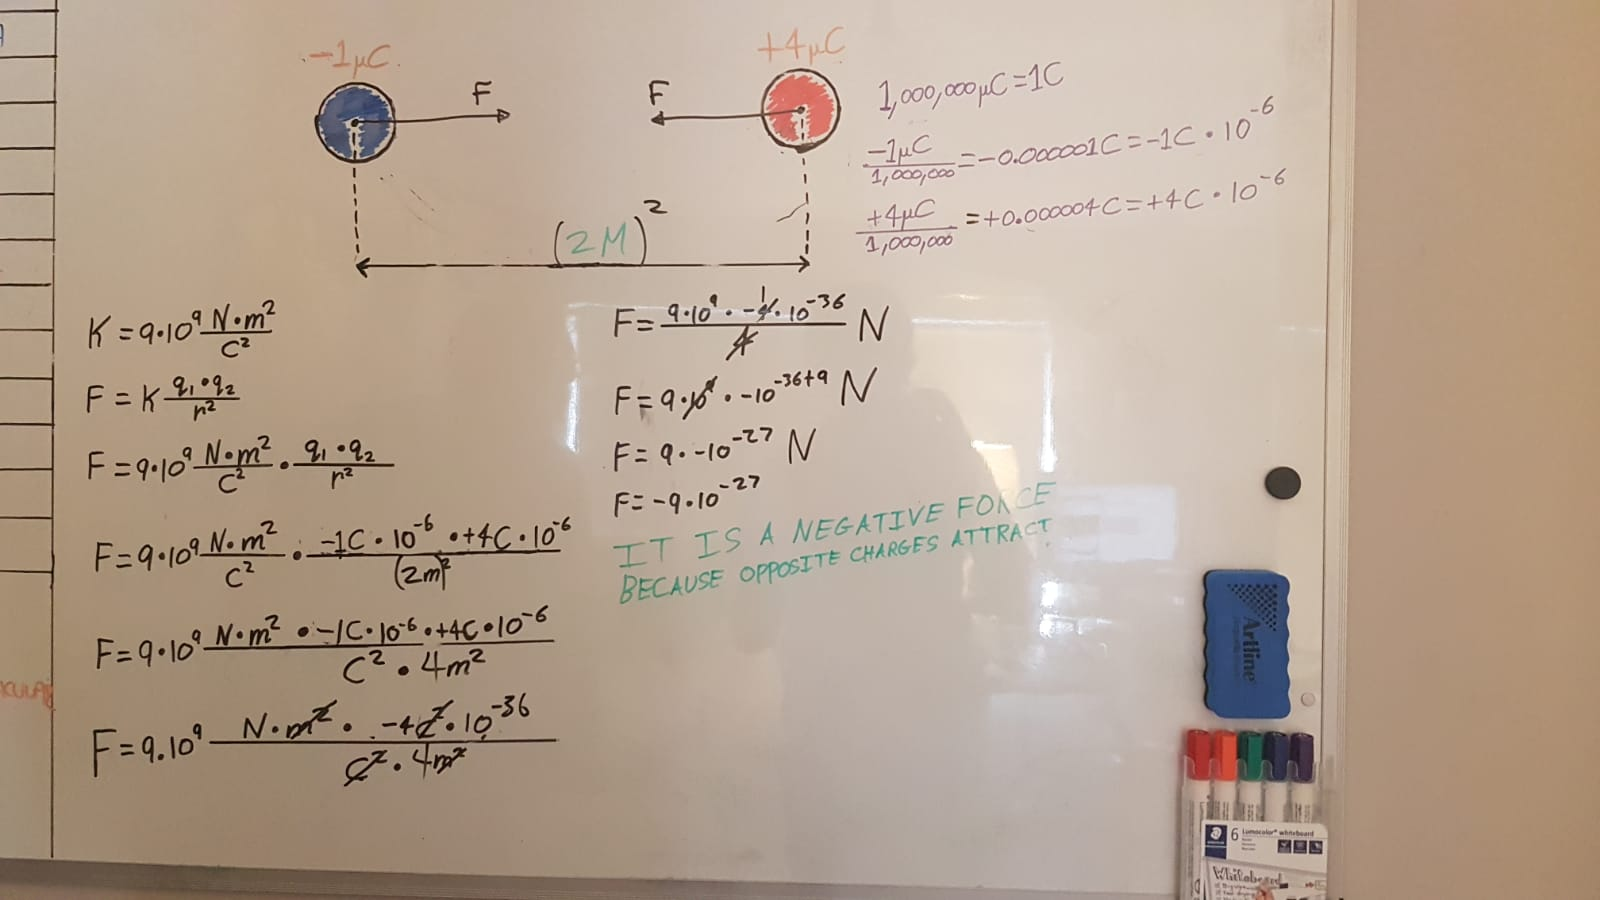 -1μC.
+4μC
F
F
(2M)²
1,000,000μC=1C
-1μC/1,000,000=-0.000001C=-1C·10⁻⁶
+4μC/1,000,000=+0.000004C=+4C·10⁻⁶
K=9·10⁹ N·m²/C²
F=K q₁·q₂/r²
F=9·10⁹ N·m²/C² · q₁·q₂/r²
F=9·10⁹ N·m²/C² · -1C·10⁻⁶·+4C·10⁻⁶/(2m)²
F=9·10⁹ N·m²·-1C·10⁻⁶·+4C·10⁻⁶/C²·4m²
F=9.10⁹ N·m²·-4C²·10⁻³⁶/C²·4m²
F=9·10⁹·-4·10⁻³⁶/4 N
1
F=9·10⁹·-10⁻³⁶⁺⁹ N
F=9·-10⁻²⁷ N
F=-9·10⁻²⁷
IT IS A NEGATIVE FORCE
BECAUSE OPPOSITE CHARGES ATTRACT
Artline
STAEDTLER
6 Lumocolor® whiteboard
Whiteboard